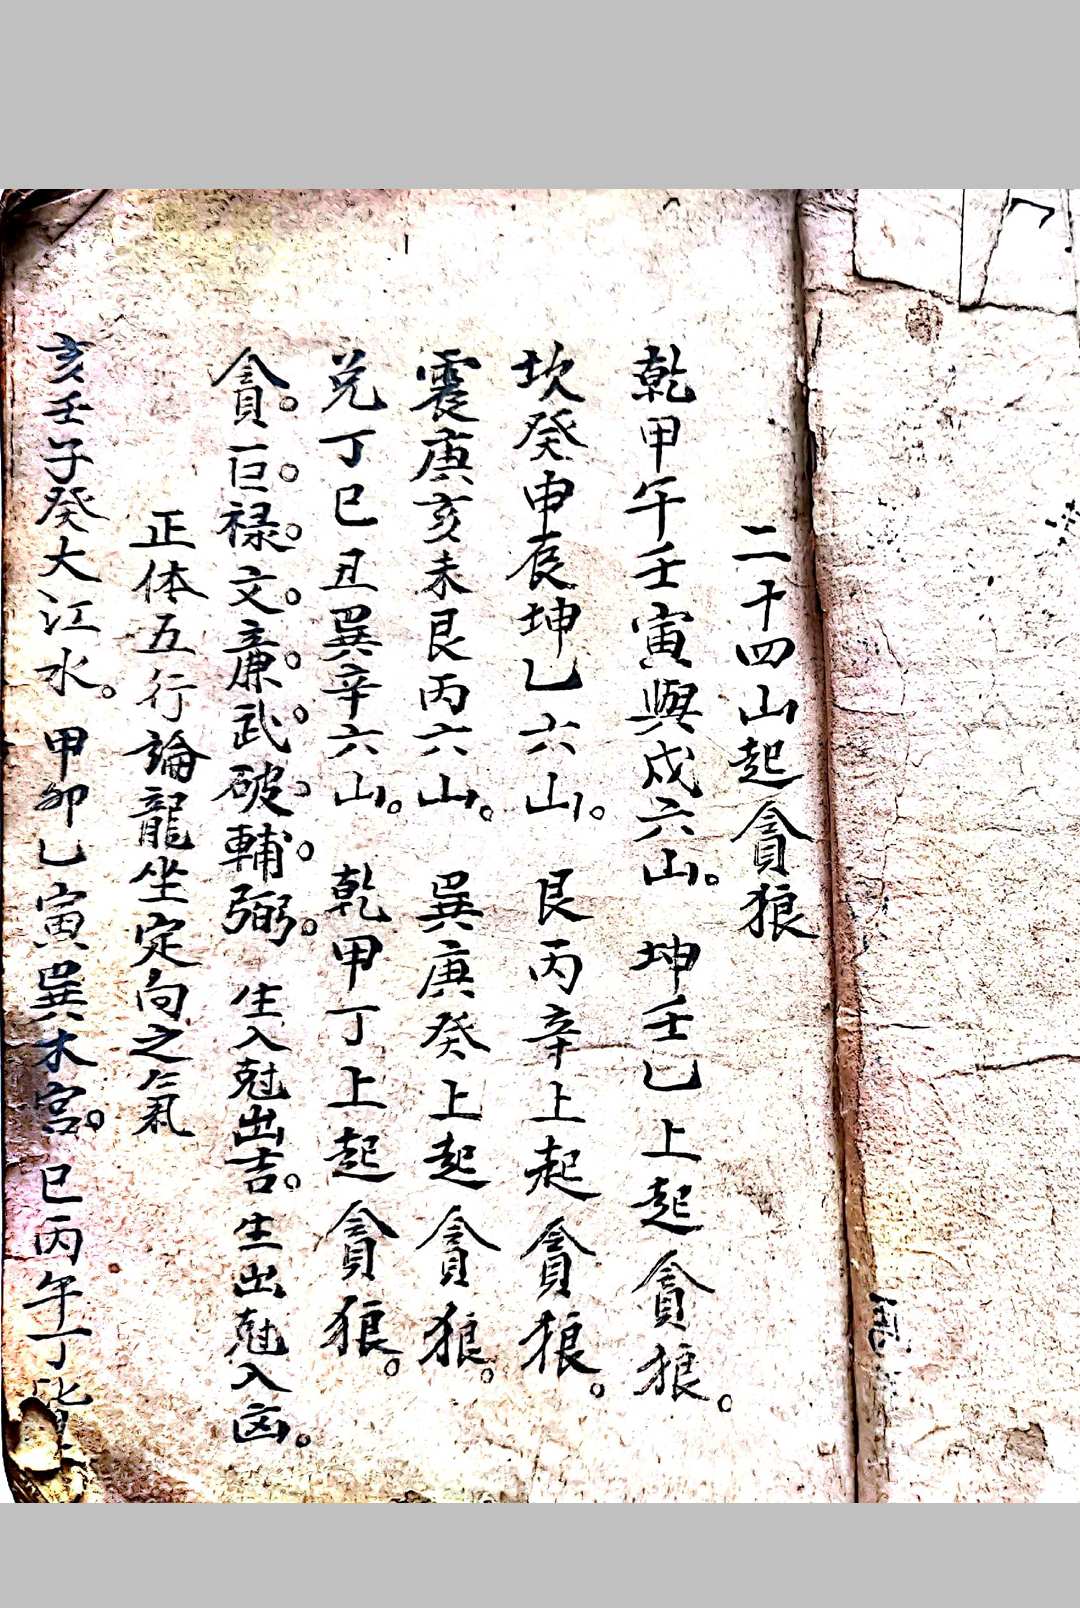 二十四山起貪狼
乾甲午壬寅與戌六山。坤壬乙上起貪狼。
坎癸申辰坤乙六山。艮丙辛上起貪狼。
震庚亥未艮丙六山。巽庚癸上起貪狼。
兌丁巳丑巽辛六山。乾甲丁上起貪狼。
貪。巨。禄。文。廉。武。破。輔。弼。生入尅出吉。生出尅入凶。
正体五行論龍坐定向之氣
亥壬子癸大江水。甲卯乙寅巽木宮。巳丙午丁皆